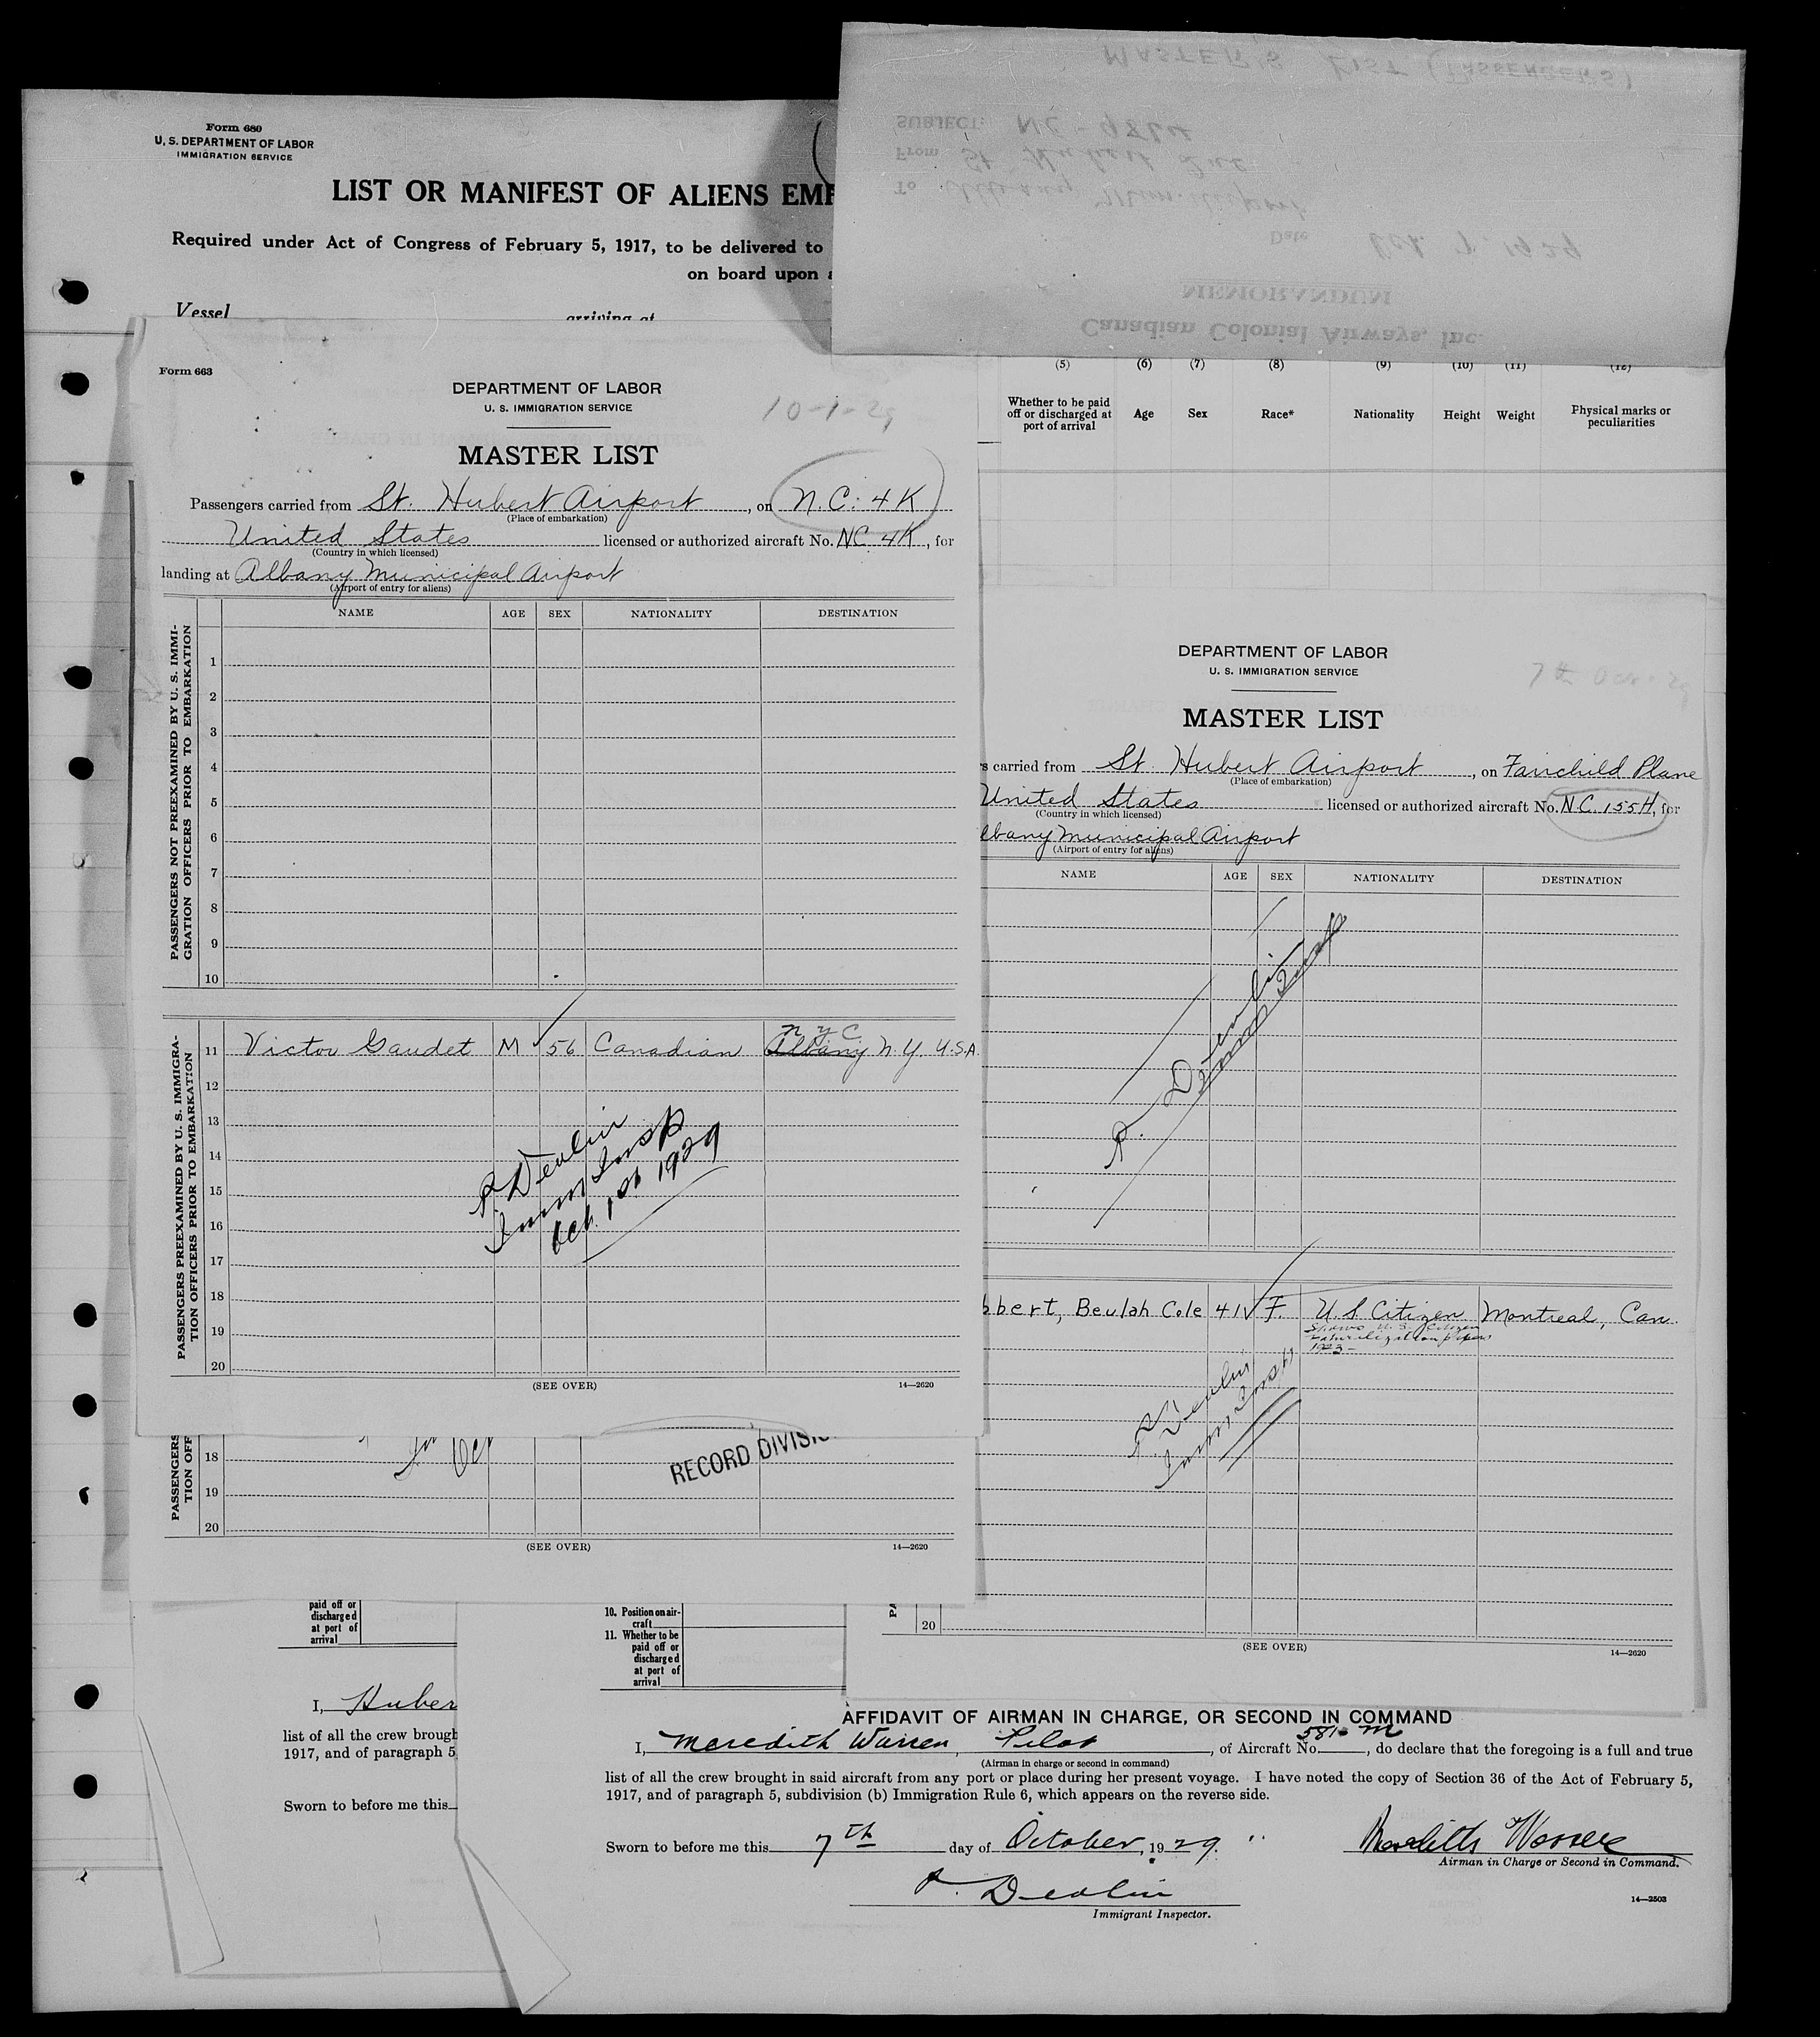 Form 680
U. S. DEPARTMENT OF LABOR
IMMIGRATION SERVICE
LIST OR MANIFEST OF ALIENS EMP
Required under Act of Congress of February 5, 1917, to be delivered to
on board upon a
Vessel arriving at
MASTER'S LIST (PASSENGERS)
SUBJECT: NC-9864
From St. Hubert Que
To Albany Mun. Airport
Date Oct. 7, 1929
MEMORANDUM
Canadian Colonial Airways, Inc.
(5) (6) (7) (8) (9) (10) (11) (12)
Whether to be paid off or discharged at port of arrival Age Sex Race* Nationality Height Weight Physical marks or peculiarities
Form 663
DEPARTMENT OF LABOR
U. S. IMMIGRATION SERVICE
10-1-29
MASTER LIST
Passengers carried from St. Hubert Airport, on N.C. 4K
(Place of embarkation)
United States licensed or authorized aircraft No. NC 4K, for
(Country in which licensed)
landing at Albany Municipal Airport
(Airport of entry for aliens)
NAME AGE SEX NATIONALITY DESTINATION
PASSENGERS NOT PREEXAMINED BY U. S. IMMI-
GRATION OFFICERS PRIOR TO EMBARKATION
1
2
3
4
5
6
7
8
9
10
PASSENGERS PREEXAMINED BY U. S. IMMIGRA-
TION OFFICERS PRIOR TO EMBARKATION
N Y C
11 Victor Gaudet M 56 Canadian Albany N.Y. U.S.A.
12
13
14
15
16
17
18
19
20
P Devlin
Imm Insp
Oct. 1st 1929
(SEE OVER) 14—2620
PASSENGERS
TION OFF
Oct
RECORD DIVISI
18
19
20
(SEE OVER) 14—2620
DEPARTMENT OF LABOR
U. S. IMMIGRATION SERVICE
7th Oct - 29
MASTER LIST
s carried from St. Hubert Airport, on Fairchild Plane
(Place of embarkation)
United States licensed or authorized aircraft No. N.C. 155H, for
(Country in which licensed)
lbany Municipal Airport
(Airport of entry for aliens)
NAME AGE SEX NATIONALITY DESTINATION
P. Devlin
Imm Insp
bbert, Beulah Cole 41 F. U.S. Citizen Montreal, Can.
Shows U.S. Citizen
naturalization papers
1923-
P Devlin
Imm. Insp
PA
20
(SEE OVER) 14—2620
paid off or
discharged
at port of
arrival
I, Huber
list of all the crew brough
1917, and of paragraph 5
Sworn to before me this
10. Position on air-
craft
11. Whether to be
paid off or
discharged
at port of
arrival
AFFIDAVIT OF AIRMAN IN CHARGE, OR SECOND IN COMMAND
I, Meredith Warren, Pilot, of Aircraft No. 581-M, do declare that the foregoing is a full and true
(Airman in charge or second in command)
list of all the crew brought in said aircraft from any port or place during her present voyage. I have noted the copy of Section 36 of the Act of February 5,
1917, and of paragraph 5, subdivision (b) Immigration Rule 6, which appears on the reverse side.
Sworn to before me this 7th day of October, 1929.
Meredith Warren
Airman in Charge or Second in Command.
P. Devlin
Immigrant Inspector.
14—2503